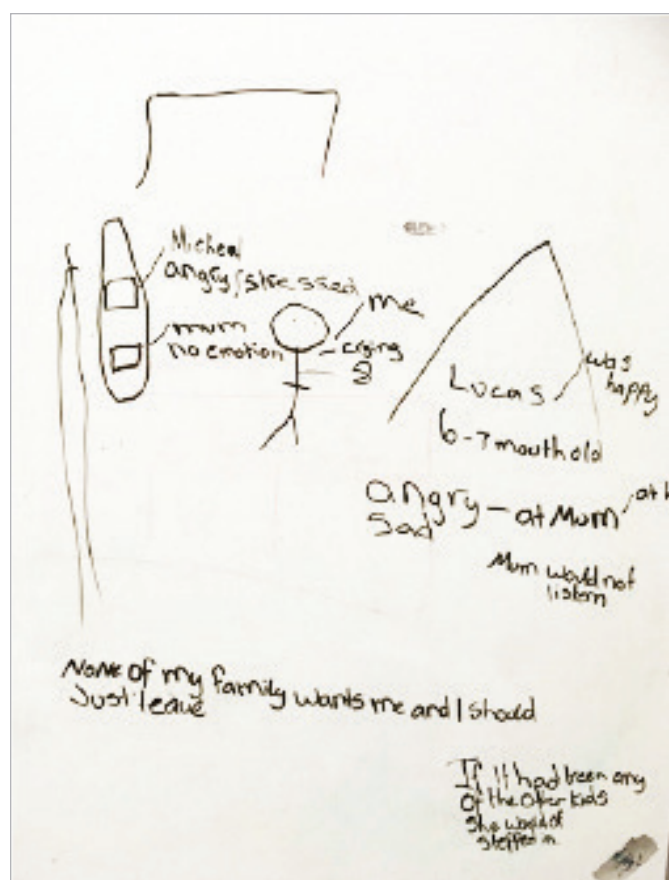 Micheal
angry/stressed
mum
no emotion
me
crying
8
Lucas
was
happy
6-7 mouth old
angry - at Mum
sad
Mum would not
listern
None of my family wants me and I should
Just leave
If it had been any
of the other kids
she would of